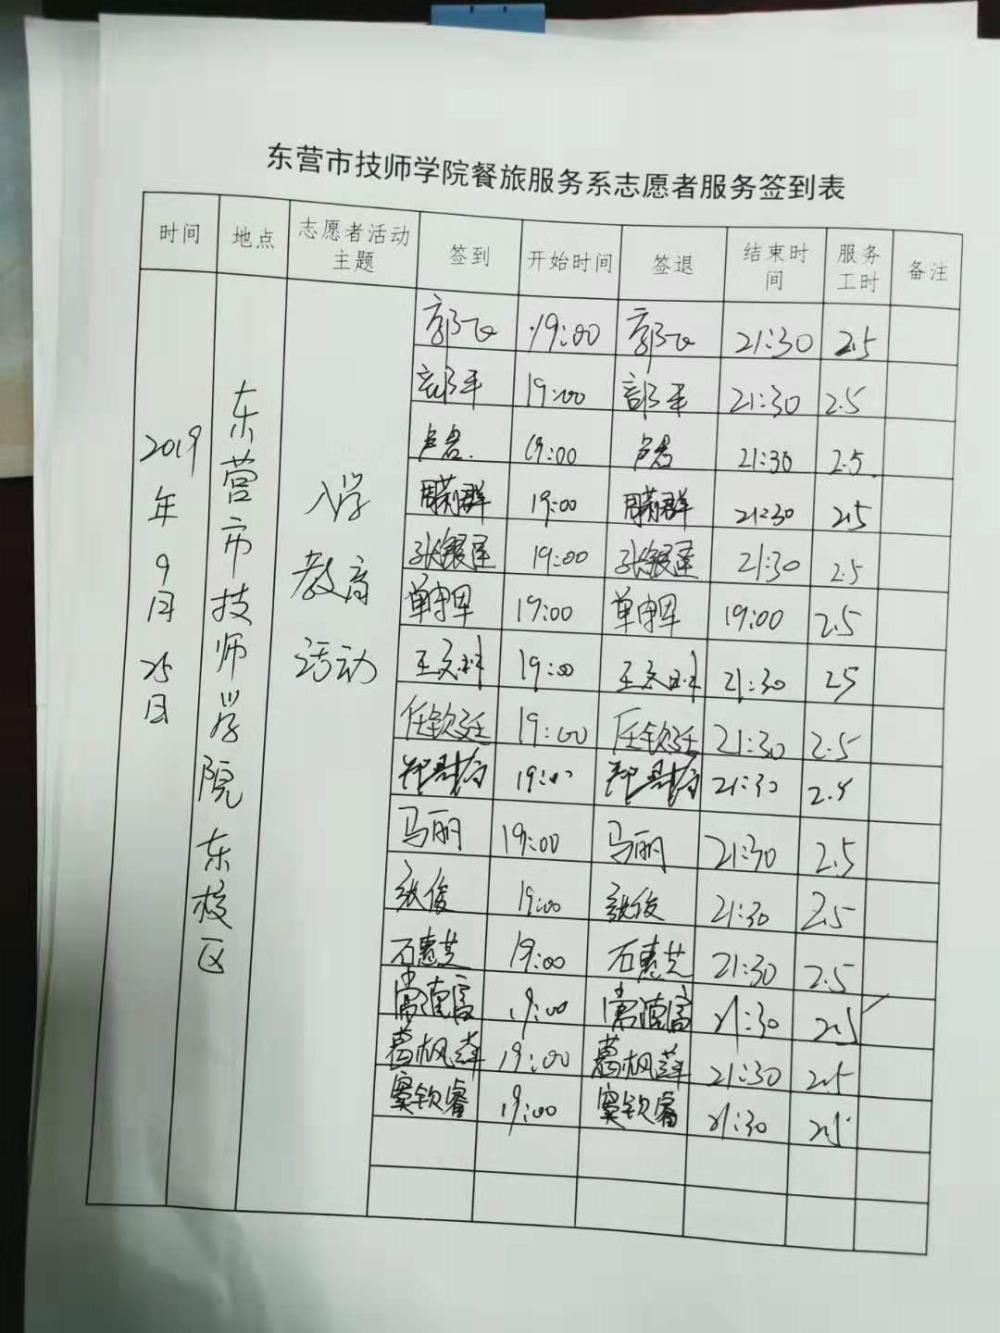 东营市技师学院餐旅服务系志愿者服务签到表
时间 地点 志愿者活动主题 签到 开始时间 签退 结束时间 服务工时 备注
2019年9月25日
东营市技师学院东校区
入学教育活动
郭飞 19:00 郭飞 21:30 2.5
19:00 21:30 2.5
卢君 19:00 卢君 21:30 2.5
周莉群 19:00 周莉群 21:30 2.5
张银莲 19:00 张银莲 21:30 2.5
单宇军 19:00 单宇军 19:00 2.5
王文 19:00 王文 21:30 25
任钦廷 19:00 任钦廷 21:30 2.5
19:00 21:30 2.5
马丽 19:00 马丽 21:30 2.5
张俊 19:00 张俊 21:30 2.5
石惠芝 19:00 石惠芝 21:30 2.5
常 19:00 常 21:30 2.5
葛枫莲 19:00 葛枫莲 21:30 2.5
窦钦睿 19:00 窦钦睿 21:30 2.5